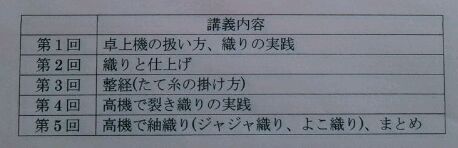 講義内容
第1回 卓上機の扱い方、織りの実践
第2回 織りと仕上げ
第3回 整経(たて糸の掛け方)
第4回 高機で裂き織りの実践
第5回 高機で紬織り(ジャジャ織り、よこ織り)、まとめ